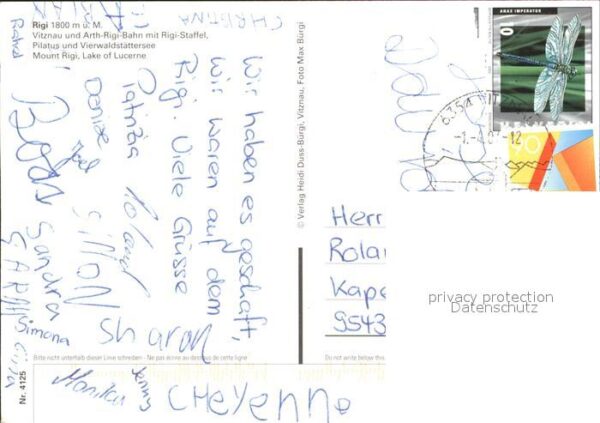 Rigi 1800 m ü. M.
Vitznau und Arth-Rigi-Bahn mit Rigi-Staffel,
Pilatus und Vierwaldstättersee
Mount Rigi, Lake of Lucerne
CHRISTINA
Wir haben es geschafft,
wir waren auf dem
Rigi. Viele Grüsse
Patrizia
Roland
Denise
SIMON
Sandra
SARAH
Simona
Sharon
Bitte nicht unterhalb dieser Linie schreiben - Ne pas écrire au-dessous de cette ligne
Nr. 4125
Monika
Jenny
CHEYENNE
© Verlag Heidi Duss-Bürgi, Vitznau, Foto Max Bürgi
ANAX IMPERATOR
01
6354
90
Herr
Kape
9543
privacy protection
Datenschutz
Do not write below